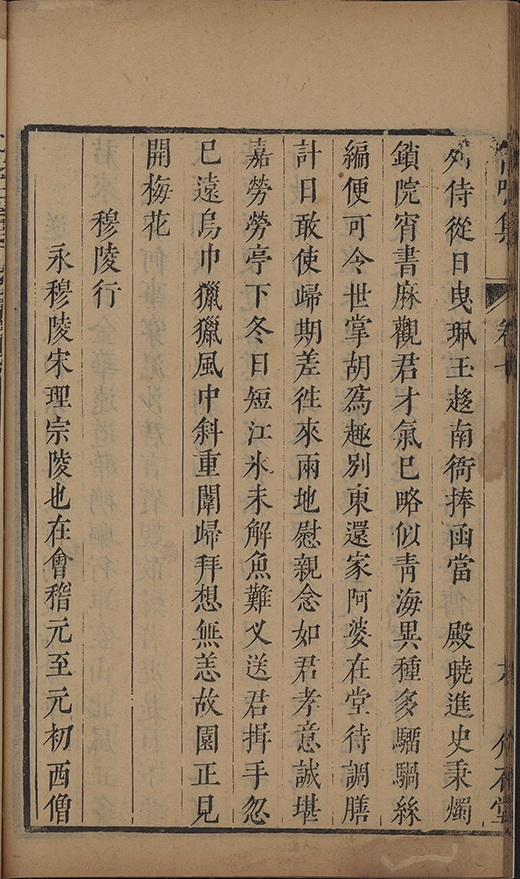 列侍從日曳珮玉趍南衙捧函當　殿曉進史秉燭
鎖院宵書麻觀君才氣已略似靑海異種多驑騧絲
編便可令世掌胡爲趣別東還家阿婆在堂待調膳
計日敢使歸期差徃來兩地慰親念如君孝意誠堪
嘉勞勞亭下冬日短江氷未解魚難义送君揖手忽
已遠烏巾獵獵風中斜重闈歸拜想無恙故園正見
開梅花
穆陵行
永穆陵宋理宗陵也在會稽元至元初西僧